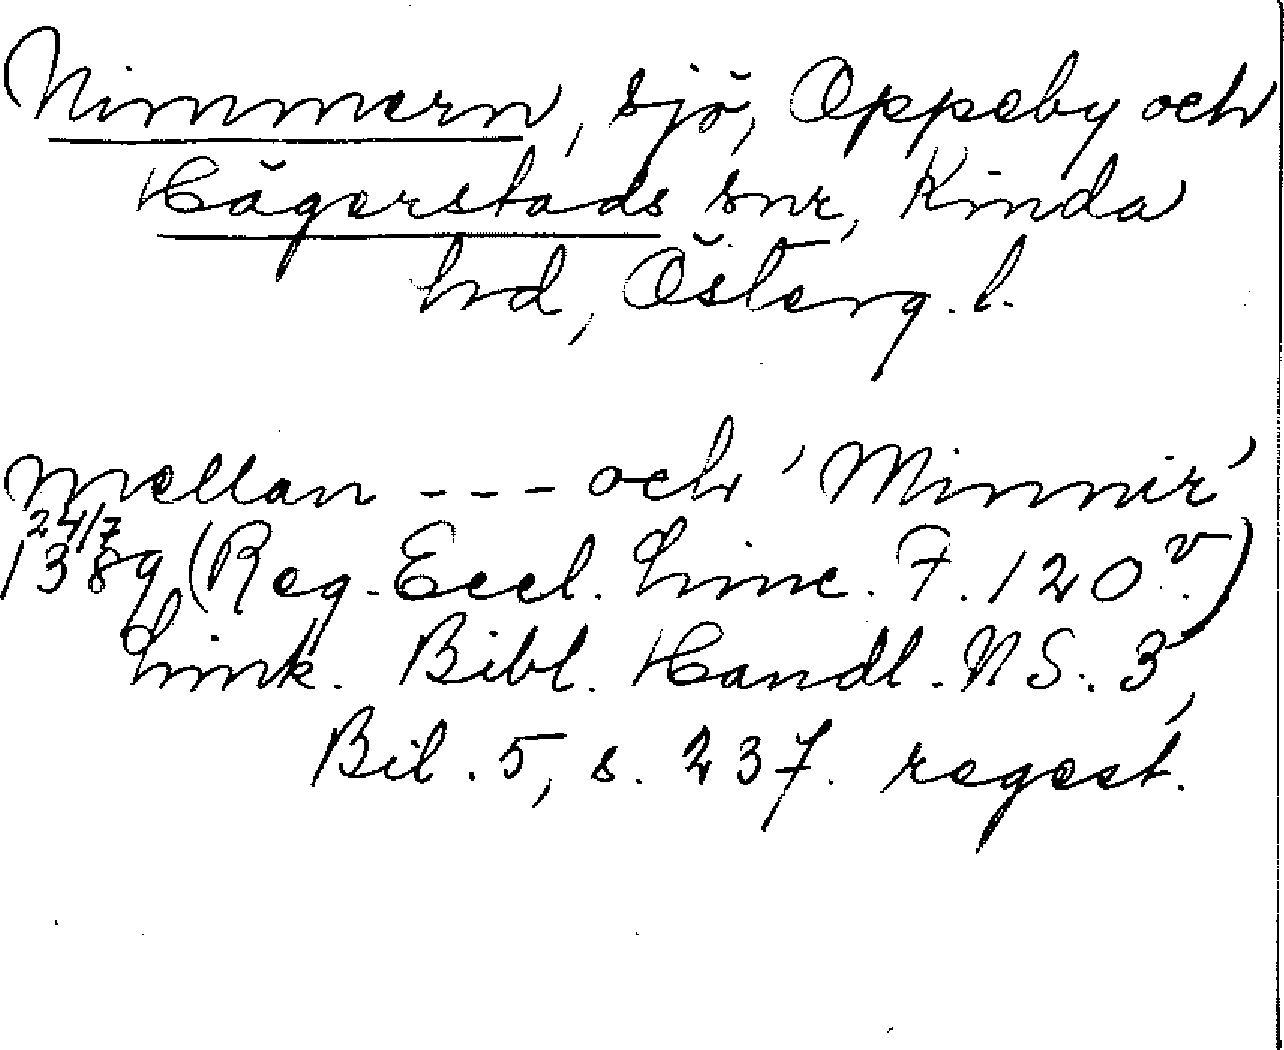 Nimmern, sjö, Oppeby och
Hägerstads snr, Kinda
hd, Österg. l.
mellan --- och 'Minnir'
24/7
1389 (Reg. Eccl. Linc. F. 120v.)
Link. Bibl. Handl. NS. 3,
Bil. 5, s. 237. regest.